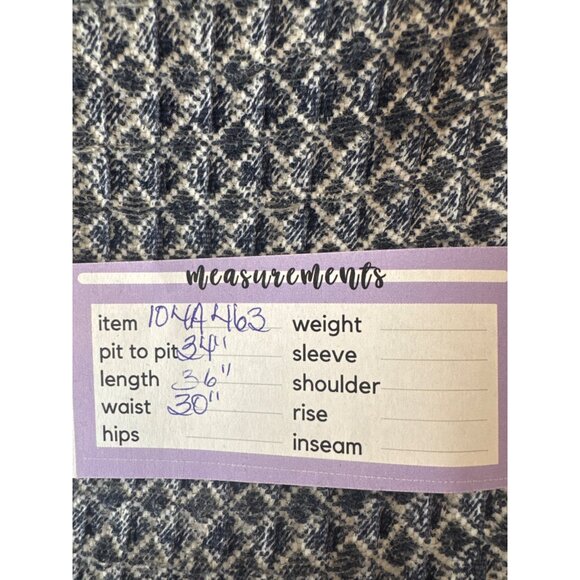 measurements
item 104A463
pit to pit 34"
length 36"
waist 30"
hips
weight
sleeve
shoulder
rise
inseam